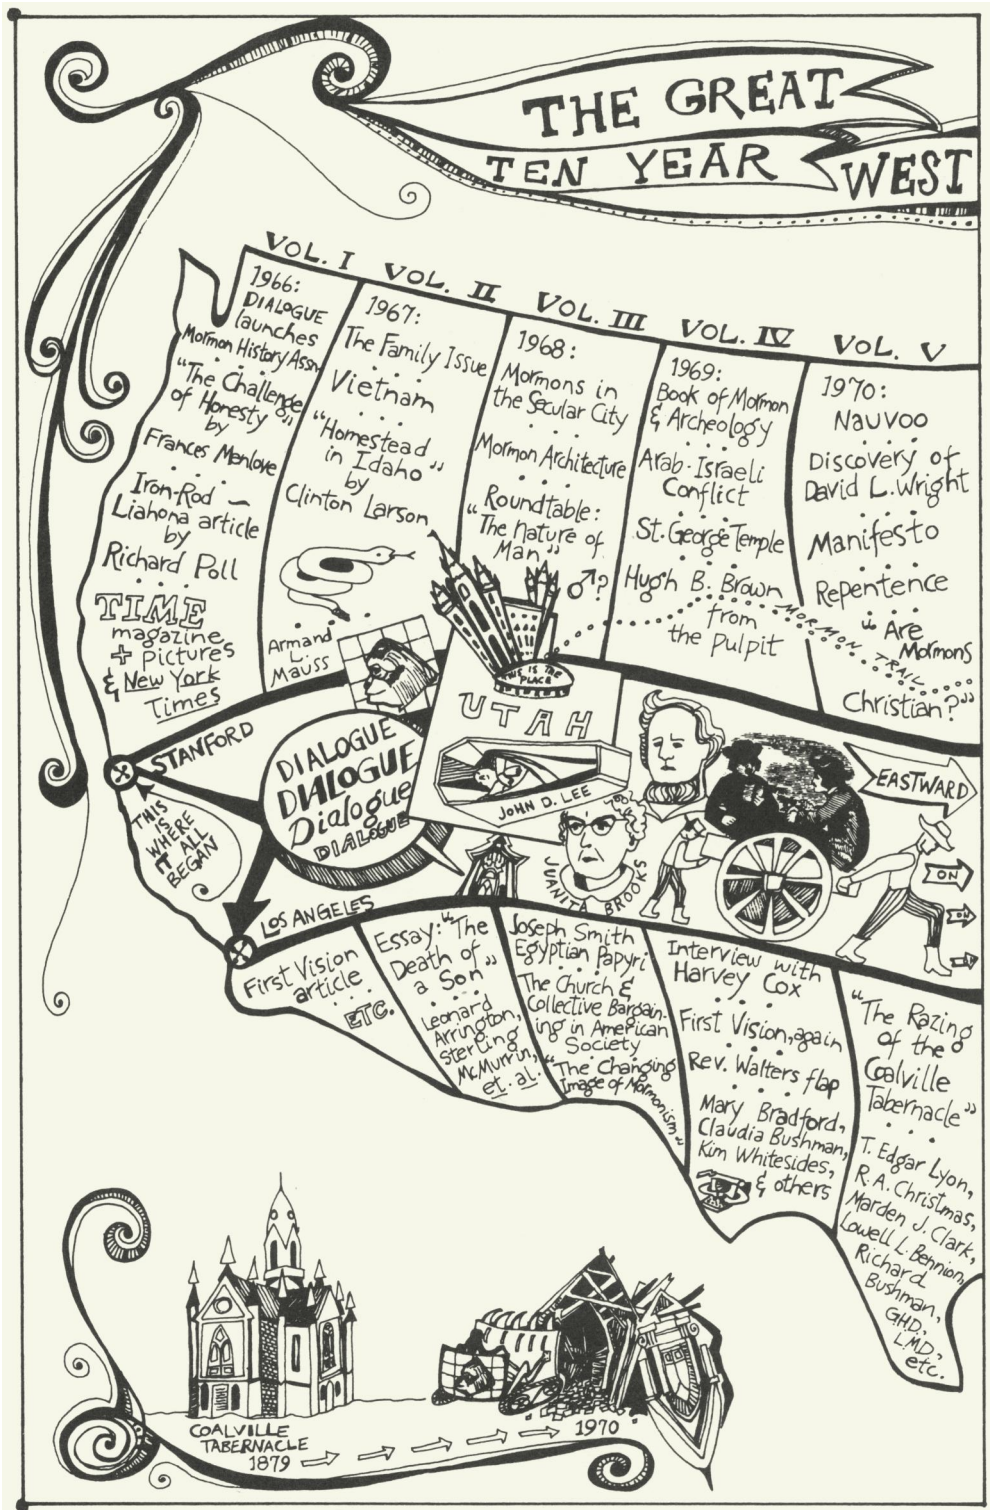 THE GREAT
TEN YEAR WEST
VOL. I
1966:
DIALOGUE
launches
Mormon History Assn
"The Challenge
of Honesty"
by
Frances Menlove
Iron-Rod –
Liahona article
by
Richard Poll
TIME
magazine
+ pictures
& New York
Times
VOL. II
1967:
The Family Issue
Vietnam
"Homestead
in Idaho"
by
Clinton Larson
Armand
L.
Mauss
VOL. III
1968:
Mormons in
the Secular City
Mormon Architecture
Roundtable:
"The Nature of
Man"
♂?
VOL. IV
1969:
Book of Mormon
& Archeology
Arab-Israeli
Conflict
St. George Temple
Hugh B. Brown
from
the Pulpit
VOL. V
1970:
Nauvoo
Discovery of
David L. Wright
Manifesto
Repentence
"Are
Mormons
Christian?"
MORMON TRAIL
THIS IS THE
PLACE
UTAH
JOHN D. LEE
JUANITA BROOKS
STANFORD
THIS
IS
WHERE
IT ALL
BEGAN
DIALOGUE
DIALOGUE
Dialogue
DIALOGUE
LOS ANGELES
EASTWARD
ON
ON
ON
First Vision
article
ETC.
Essay: "The
Death of
a Son"
Leonard
Arrington,
Sterling
McMurrin,
et. al.
Joseph Smith
Egyptian Papyri
The Church &
Collective Bargain-
ing in American
Society
"The Changing
Image of Mormonism"
Interview with
Harvey Cox
First Vision, again
Rev. Walters flap
Mary Bradford,
Claudia Bushman,
Kim Whitesides,
& others
"The Razing
of the
Coalville
Tabernacle"
T. Edgar Lyon,
R.A. Christmas,
Marden J. Clark,
Lowell L. Bennion,
Richard
Bushman,
GHD,
LMD,
etc.
COALVILLE
TABERNACLE
1879
1970